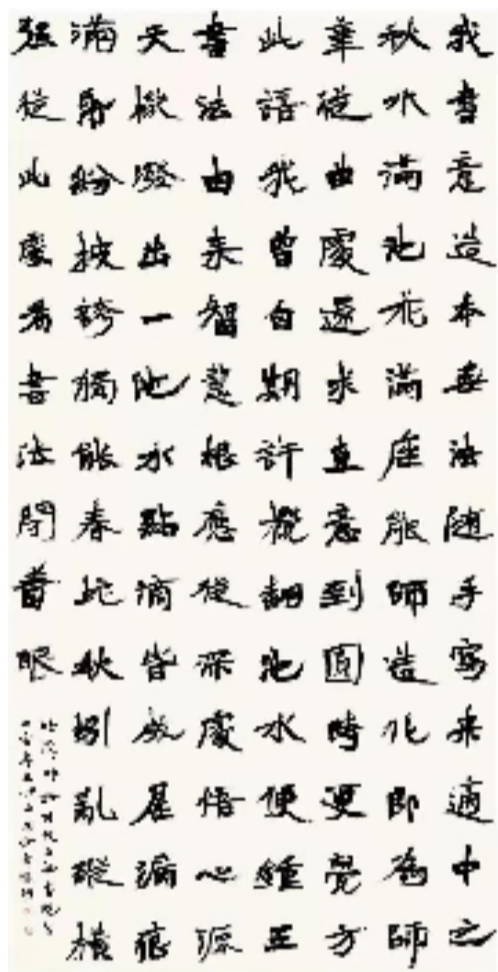 我書意造本無法随手寫来適中之
秋水滿池花滿座能師造化即為師
筆從曲處還求直意到圓時更覺方
此語我曾自期許攪翻池水便鍾王
書法由来智慧根應從深處悟心源
天機潑出一池水點滴皆成屋漏痕
滿身紛披誇獨能春蛇秋蚓亂縱橫
强從此處看書法閉著眼